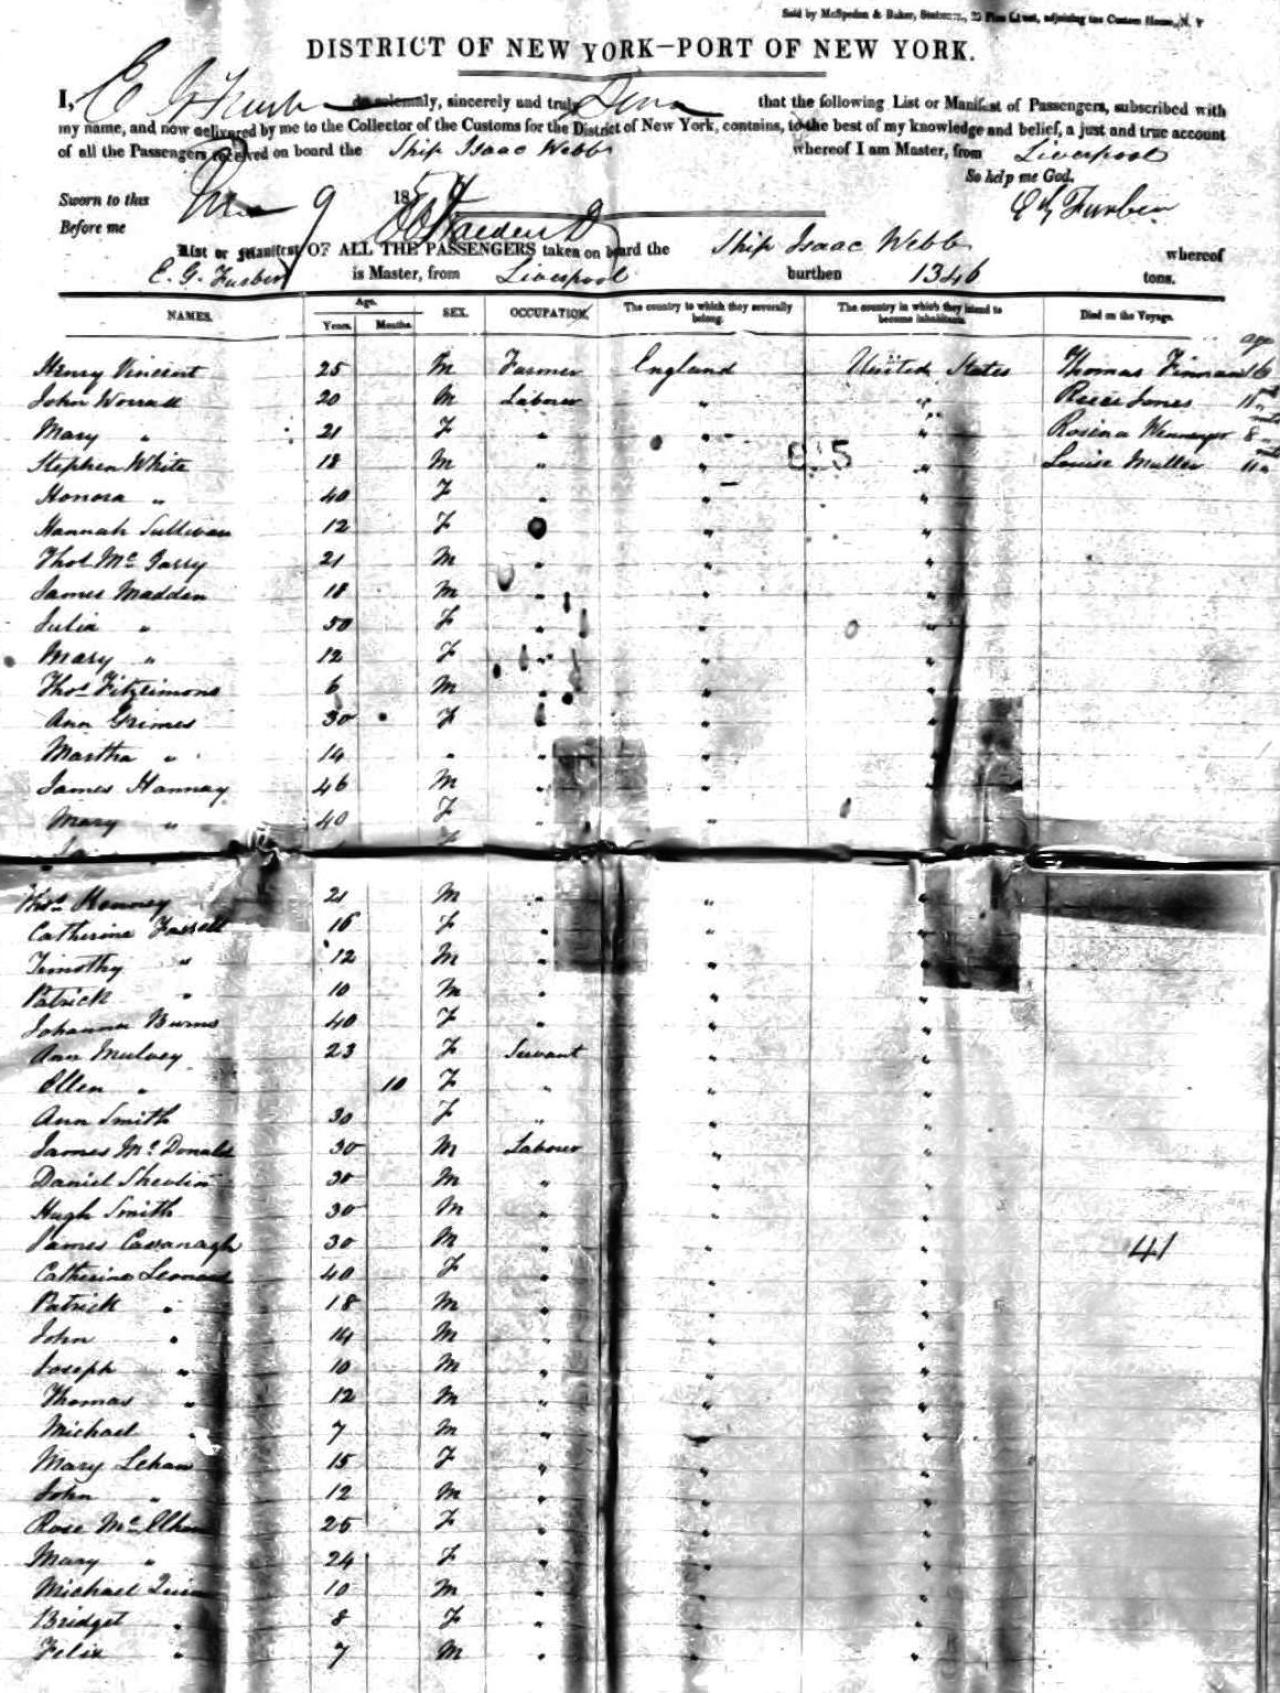 Sold by McSpedon & Baker, Stationers, 25 Pine Street, adjoining the Custom House, N. Y
DISTRICT OF NEW YORK—PORT OF NEW YORK.
I, E. G. Furber do solemnly, sincerely and truly that the following List or Manifest of Passengers, subscribed with
my name, and now delivered by me to the Collector of the Customs for the District of New York, contains, to the best of my knowledge and belief, a just and true account
of all the Passengers received on board the Ship Isaac Webb whereof I am Master, from Liverpool
So help me God.
Sworn to this 9 185
E G Furber
Before me
List or Manifest OF ALL THE PASSENGERS taken on board the Ship Isaac Webb whereof
E. G. Furber is Master, from Liverpool burthen 1346 tons.
NAMES. Age. Years. Months. SEX. OCCUPATION. The country to which they severally belong. The country in which they intend to become inhabitants. Died on the Voyage.
age
Henry Vincent 25 M Farmer England United States Thomas Finnan 16
John Worrall 20 M Labourer " " Reece Jones 11
Mary " 21 F " " " Rosina 8
Stephen White 18 M " " " Louise Muller 11
Honora " 40 F " " "
Hannah Sullivan 12 F " " "
Thos Mc Garry 21 M " " "
James Madden 18 M " " "
Julia " 50 F " " "
Mary " 12 F " " "
Thos Fitzsimons 6 M " " "
Ann Grimes 30 F " " "
Martha " 14 " " " "
James Hannay 46 M " " "
Mary " 40 F " " "
Thos Kenney 21 M " " "
Catherine Farrell 16 F " " "
Timothy " 12 M " " "
Patrick " 10 M " " "
Johanna Burns 40 F " " "
Ann Mulvey 23 F Servant " "
Ellen " 10 F " " "
Ann Smith 30 F " " "
James Mc Donald 30 M Labourer " "
Daniel Shevlin 30 M " " "
Hugh Smith 30 M " " "
James Cavanagh 30 M " " " 41
Catherine Leonard 40 F " " "
Patrick " 18 M " " "
John " 14 M " " "
Joseph " 10 M " " "
Thomas " 12 M " " "
Michael " 7 M " " "
Mary Lehan 15 F " " "
John " 12 M " " "
Rose 25 F " " "
Mary " 24 F " " "
Michael Quinn 10 M " " "
Bridget " 8 F " " "
Felix " 7 M " " "